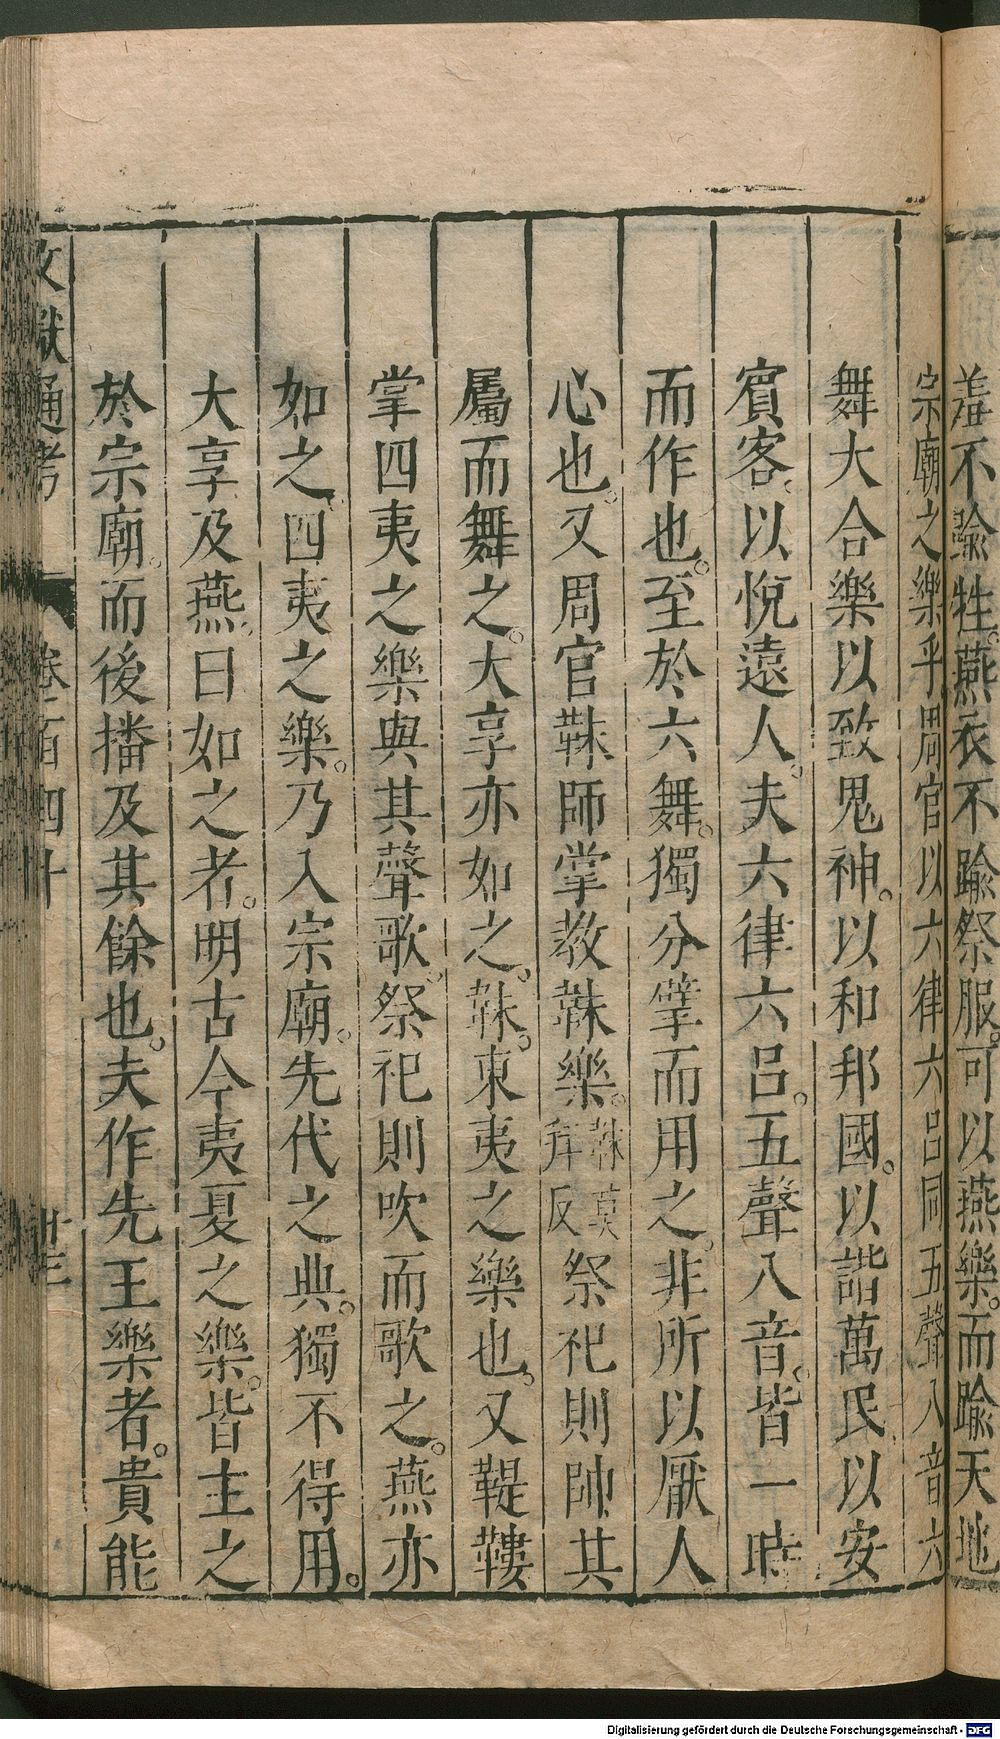 羞不踰牲。燕衣不踰祭服。可以燕樂。而踰天地
宗廟之樂乎周官以六律六呂同五聲八音六
舞大合樂以致鬼神。以和邦國。以諧萬民以安
賓客。以悅遠人。夫六律六呂。五聲八音。皆一時
而作也。至於六舞。獨分擘而用之。非所以厭人
心也。又周官韎師掌教韎樂。韎莫拜反祭祀則帥其
屬而舞之。大享亦如之。韎。東夷之樂也。又鞮鞻
掌四夷之樂與其聲歌。祭祀則吹而歌之。燕亦
如之。四夷之樂。乃入宗廟。先代之典。獨不得用。
大享及燕。曰如之者。明古今夷夏之樂。皆主之
於宗廟。而後播及其餘也。夫作先王樂者。貴能
文獻通考 卷一百四十 廿三
Digitalisierung gefördert durch die Deutsche Forschungsgemeinschaft - DFG